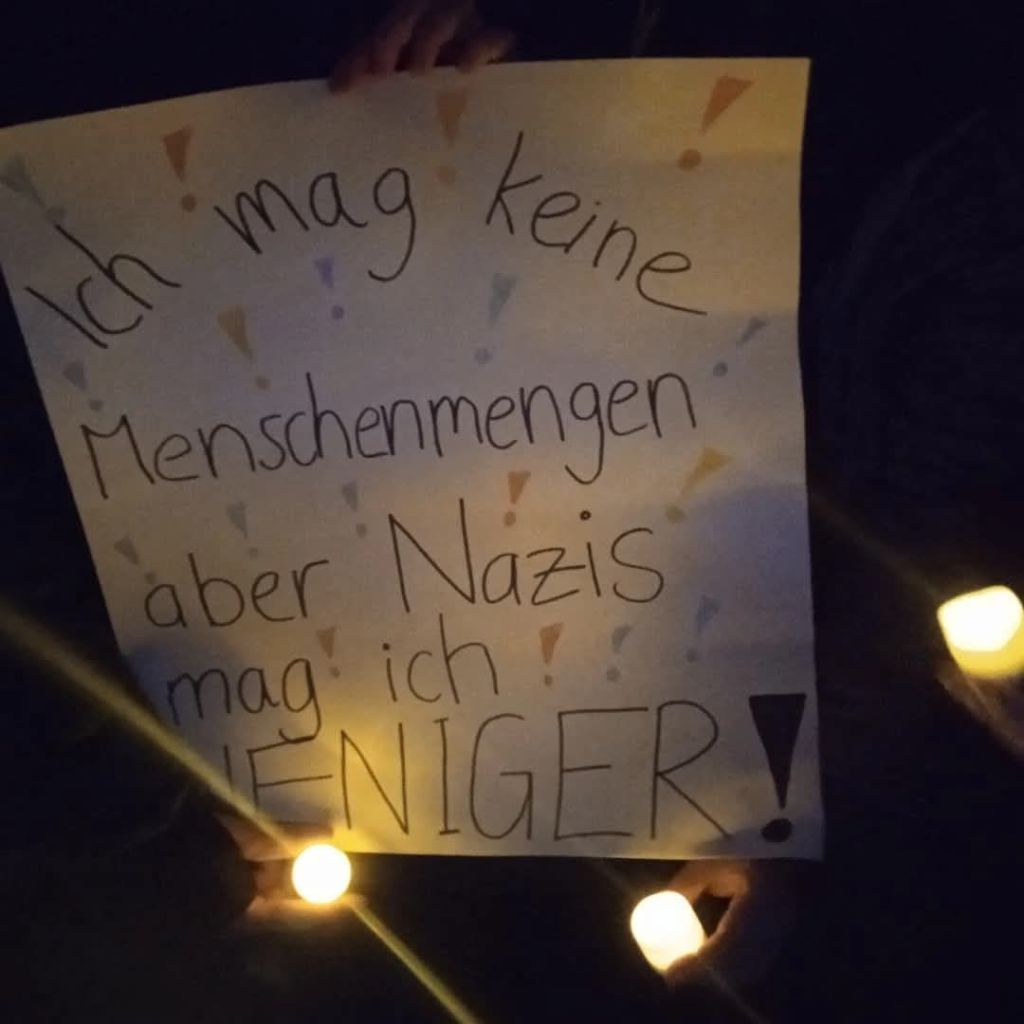 Ich mag keine
Menschenmengen
aber Nazis
mag ich
ENIGER!